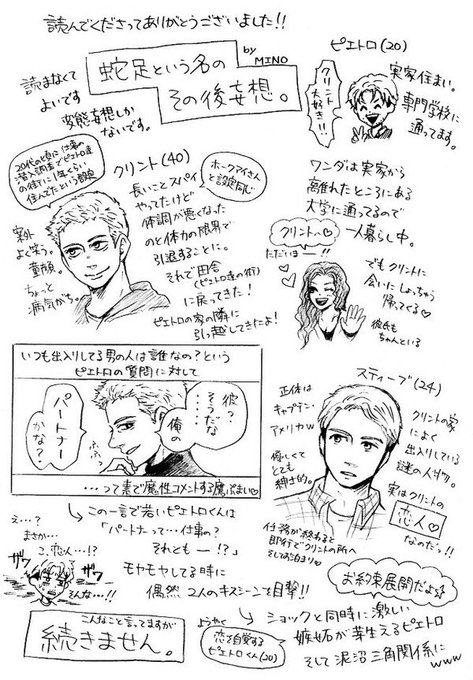 読んでくださってありがとうございました!!
蛇足という名の
その後妄想。
by
MINO
読まなくて
よいです
変態妄想しか
ないです。
ピエトロ(20)
クリント
大好き!!
実家住まい。
専門学校に
通ってます。
ワンダは実家から
離れたところにある
大学に通ってるので
一人暮らし中。
クリント〜♡
ただいまー!!
でもクリントに
会いにしょっちゅう
帰ってくる♡
彼氏も
ちゃんといる
20代の頃に仕事の
潜入調査でピエトロ達
の街に1年くらい
住んでたという設定
クリント(40)
ホークアイさん
と設定同じ
長いことスパイ
やってたけど
体調が悪くなった
のと体力の限界で
引退することに。
それで田舎
(ピエトロ達の街)
に戻ってきた!
ピエトロの家の隣に
引っ越してきたよ!
案外
よく笑う。
童顔。
ちょっと
病気がち。
いつも出入りしてる男の人は誰なの?という
ピエトロの質問に対して
彼?
そうだな…
俺の…
パートナー
かな?
ふふっ
…って素で魔性コメントする魔ぶまい♡
スティーブ(24)
正体は
キャプテン・
アメリカw
優しくて
とても
紳士的。
クリントの家
によく
出入りしている
謎の人物。
実はクリントの
恋人♡
なのだっ!!
任務が終わると
即行でクリントの所へ
そしてお泊まり♡
お約束展開だよ
この一言で若いピエトロくんは
「パートナーって…仕事の?
それともー!?」
え…?
まさか…
こ、恋人…!?
そんな…!!
ザワ
ザワ
モヤモヤしてる時に
偶然2人のキスシーンを目撃!!
ショックと同時に激しい
嫉妬が芽生えるピエトロ
そして泥沼三角関係に
www
ようやく
恋を自覚する
ピエトロくん(20)
こんなこと言ってますが
続きません。